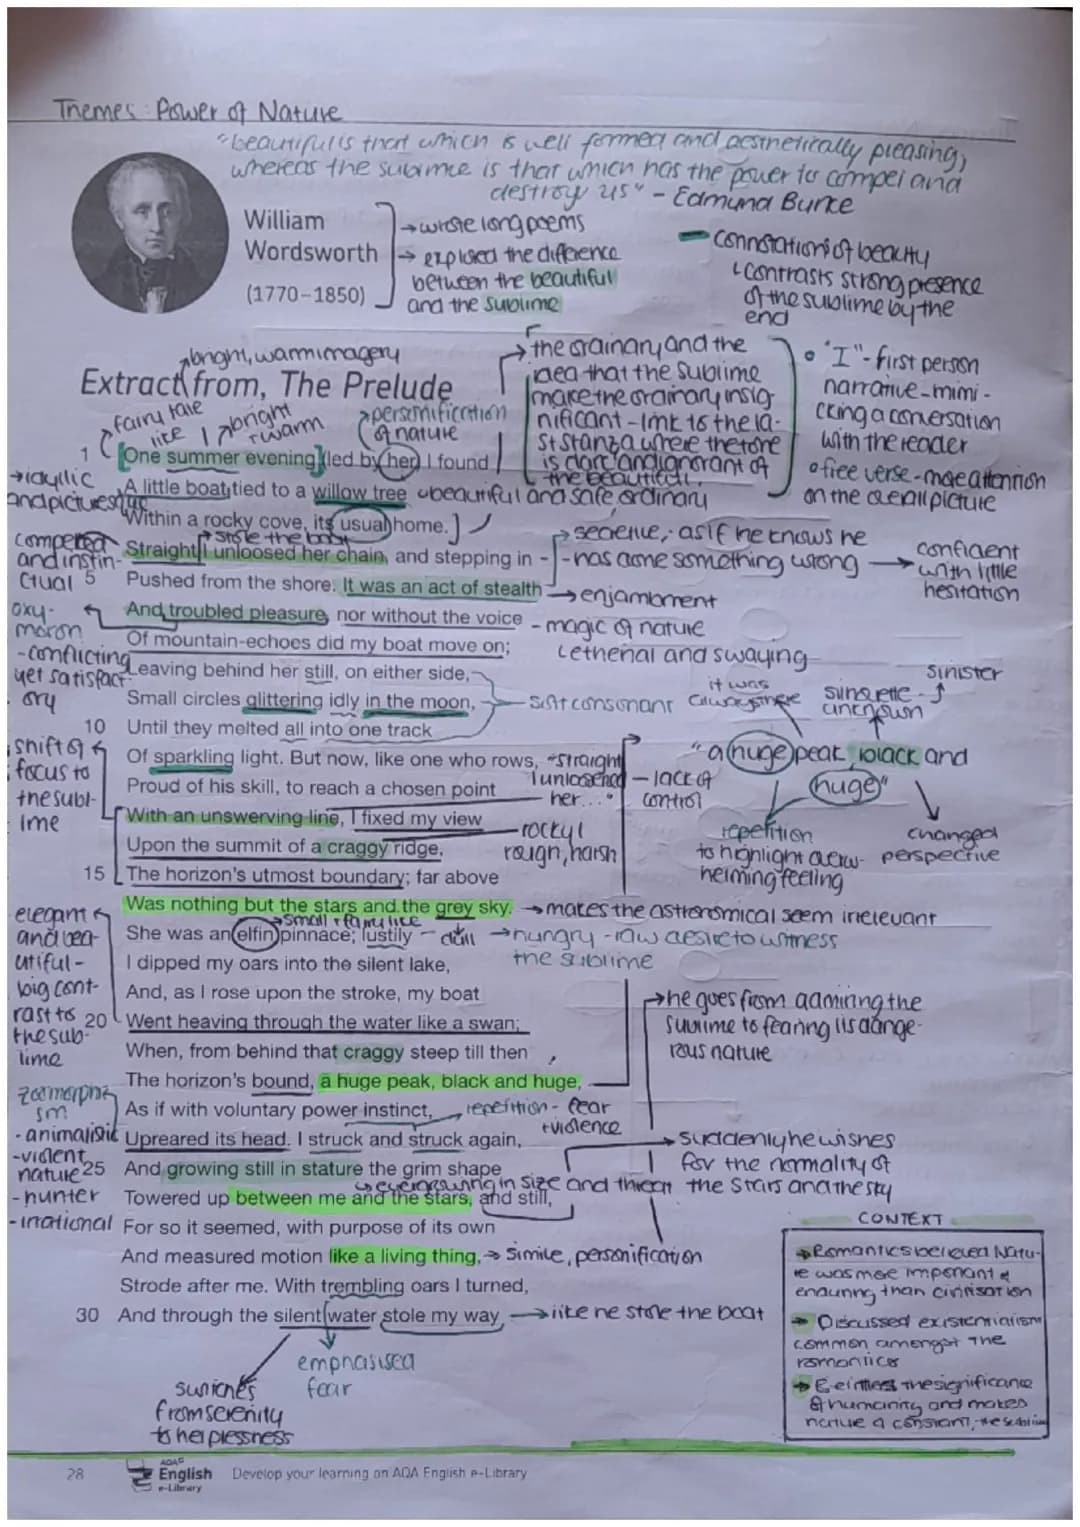 Themes: Power of Nature
"beautiful is that which is well formed and aesthetically pleasing,
whereas the sublime is that which has the power to compel and
destroy us" - Edmund Burke
William
Wordsworth
(1770–1850)
→ wrote long poems
→ explored the difference
between the beautiful
and the sublime
connotations of beauty
contrasts strong presence
of the sublime by the
end
bright, warm imagery
Extract from, The Prelude
→ the ordinary and the
idea that the sublime
make the ordinary insig
nificant - link to the la-
st stanza where
is and ignorant of
the beautiful.
"I" - first person
narrative - mimi -
cking a conversation
with the reader
free verse - more attention
on the overall picture
fairytale
like
bright
+ warm
→ personification
of nature
1 One summer evening (led by her) I found
→ idyllic
and picturesque
A little boat tied to a willow tree
beautiful and safe, ordinary
Within a rocky cove, its usual home.
stole the boat
compelled
and instin-
ctual
Straight I unloosed her chain, and stepping in
5 Pushed from the shore. It was an act of stealth
as if he knows he
has done something wrong
→ confident
with little
hesitation
→ enjambment
oxy-
moron
- conflicting
yet satisfact-
ory
And troubled pleasure, nor without the voice
- magic of nature
Of mountain-echoes did my boat move on;
and swaying
Leaving behind her still, on either side,
Small circles glittering idly in the moon,
soft consonant
10 Until they melted all into one track
it was
always there
unknown
sinister
"a huge peak, black and
huge"
repetition
to highlight overw-
helming feeling
changed
perspective
shift of
focus to
the subl-
ime
Of sparkling light. But now, like one who rows,
"straight
I unloosed
her..."
- lack of
control
Proud of his skill, to reach a chosen point
With an unswerving line, I fixed my view
Upon the summit of a craggy ridge,
- rocky,
rough, harsh
15 The horizon's utmost boundary; far above
Was nothing but the stars and the grey sky.
→ makes the astronomical seem irrelevant
small + fairy like
She was an elfin pinnace; lustily
dull
→ hungry - raw desire to witness
the sublime
elegant
and bea-
utiful -
big cont-
rast to
the sub-
lime
I dipped my oars into the silent lake,
And, as I rose upon the stroke, my boat
20 Went heaving through the water like a swan;
When, from behind that craggy steep till then
The horizon's bound, a huge peak, black and huge,
→ he goes from admiring the
sublime to fearing its dange-
rous nature
zoomorphi-
sm
- animalistic
- violent
nature
- hunter
- irrational
As if with voluntary power instinct,
repetition - fear
+ violence
Upreared its head. I struck and struck again,
25 And growing still in stature the grim shape
evergrowing in size and threat
Towered up between me and the stars, and still,
→ suddenly he wishes
for the normality of
the stars and the sky
For so it seemed, with purpose of its own
And measured motion like a living thing,
→ simile, personification
Strode after me. With trembling oars I turned,
30 And through the silent water stole my way
→ like he stole the boat
switches
from serenity
to helplessness
emphasised
fear
CONTEXT
→ Romantics believed Natu-
re was more important &
enduring than civilisation
→ Discussed existentialism
common amongst the
romantics
→ Belittles the significance
of humanity and makes
nature a constant, the sublime
28
AQA
English
e-Library
Develop your learning on AQA English e-Library